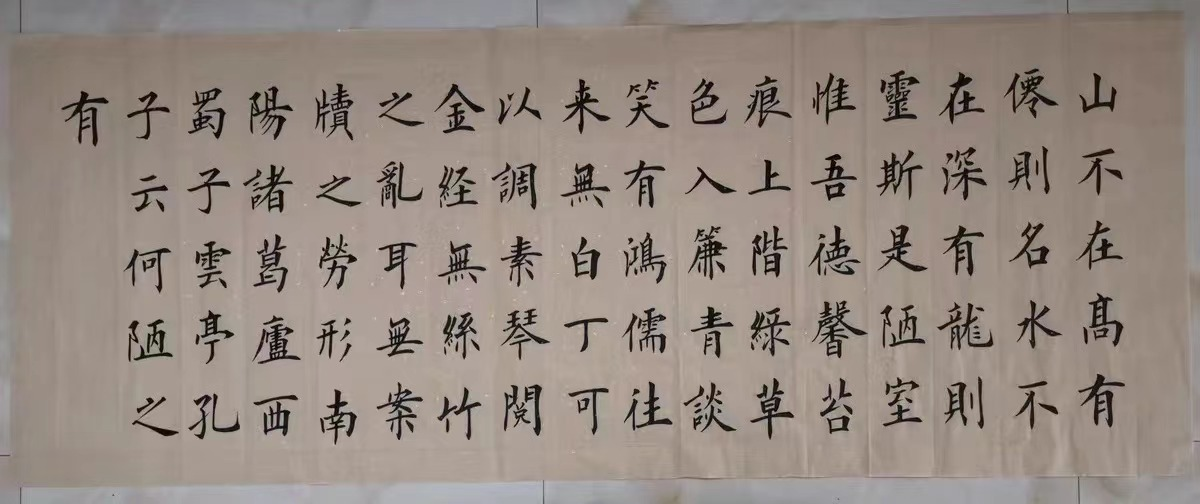 山不在髙有
僊則名水不
在深有龍則
靈斯是陋室
惟吾德馨苔
痕上階綠草
色入簾青談
笑有鴻儒往
来無白丁可
以調素琴閱
金経無絲竹
之亂耳無案
牘之勞形南
陽諸葛廬西
蜀子雲亭孔
子云何陋之
有